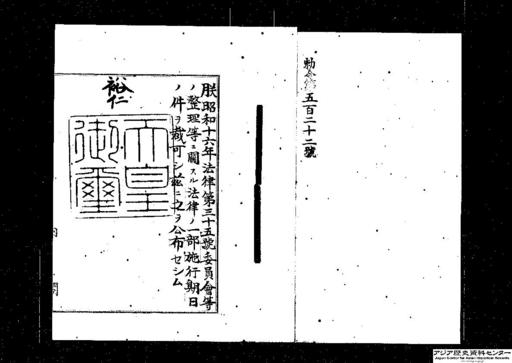 勅令第五百二十二號
朕昭和十六年法律第三十五號委員會等
ノ整理等ニ關スル法律ノ一部施行期日
ノ件ヲ裁可シ茲ニ之ヲ公布セシム
裕仁
天皇御璽
内閣
アジア歴史資料センター
Japan Center for Asian Historical Records